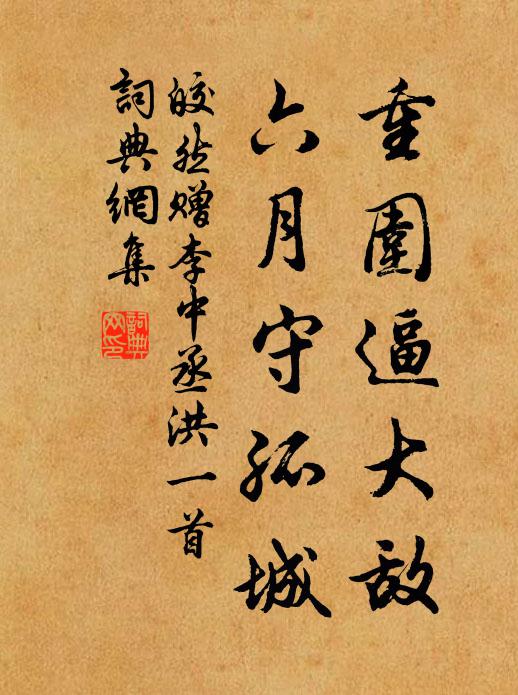 重圍逼大敵
六月守孤城
皎然贈李中丞洪一首
詞典網集
詞典网印